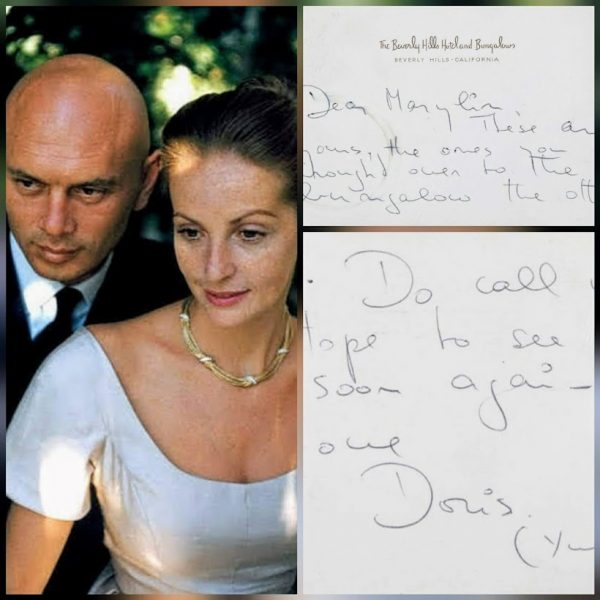 The Beverly Hills Hotel and Bungalows
BEVERLY HILLS · CALIFORNIA
Dear Marylin,
These
the ones you
over to the
Bungalow the
Do call
Hope to see
soon agai-
ove
Doris.
(Yu